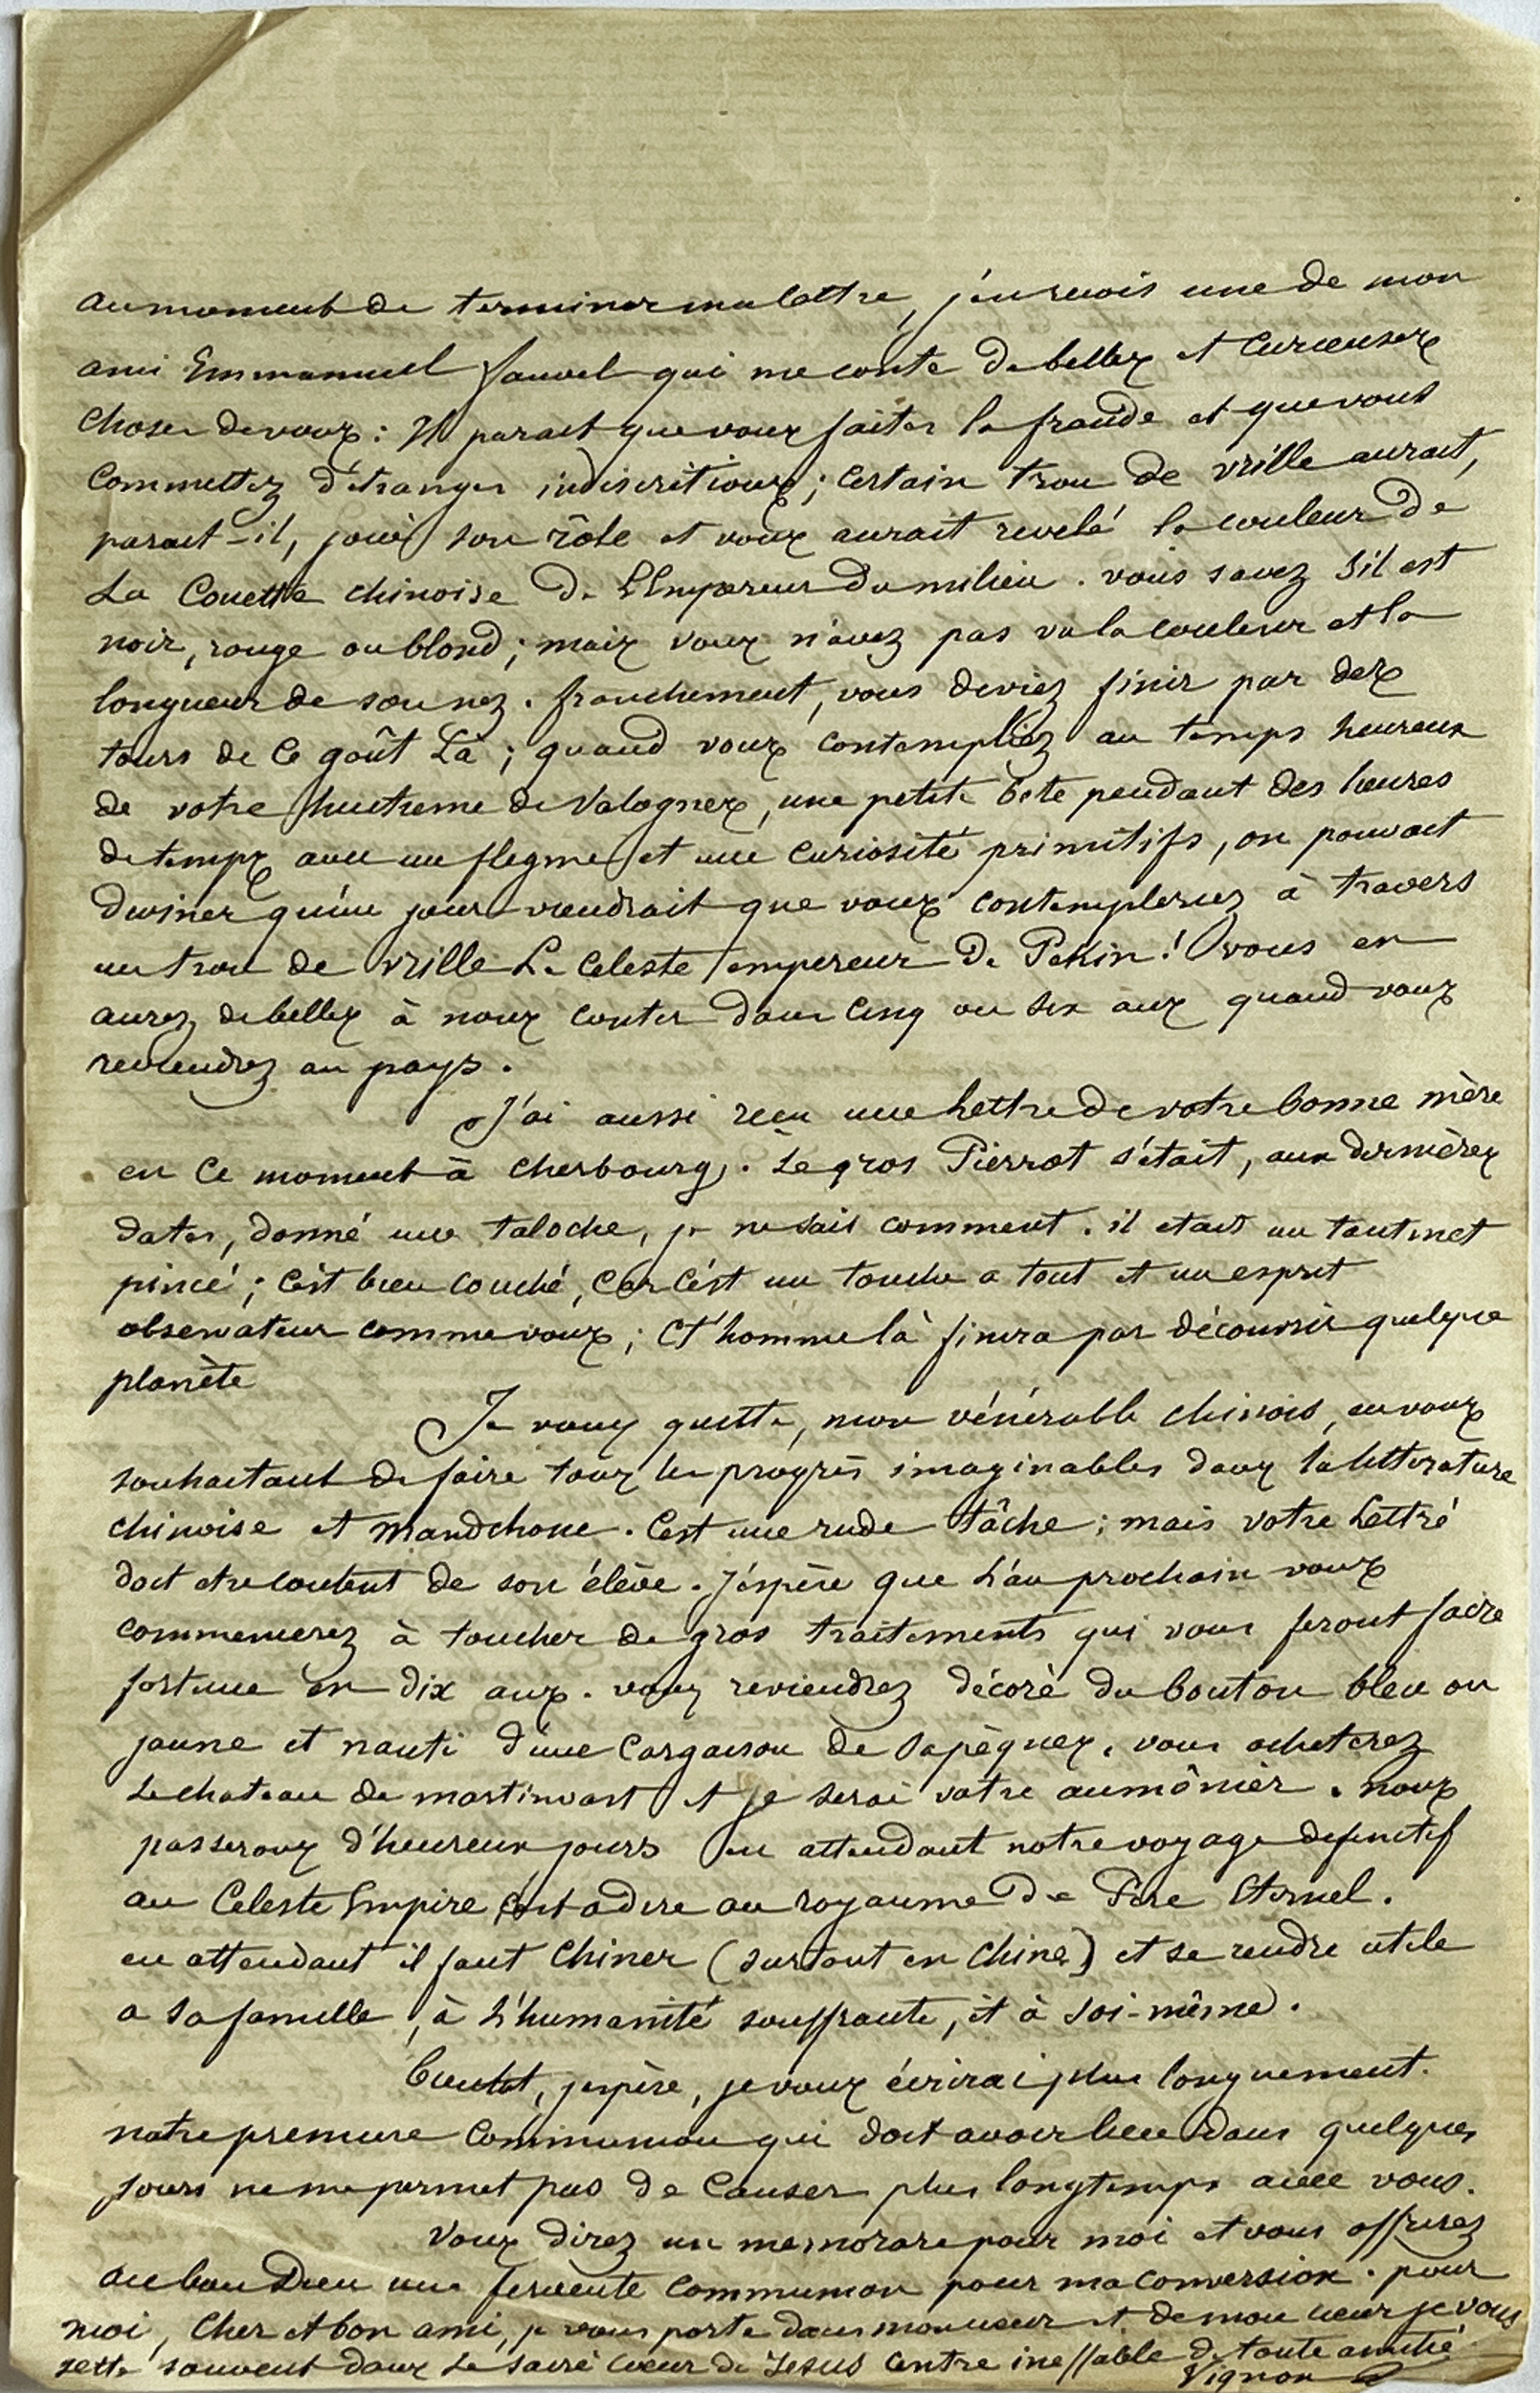 au moment de terminer ma lettre, j'en reçois une de mon
ami Emmanuel fauvel qui me conte de belles et curieuses
choses de vous : Il parait que vous faites la fraude et que vous
commettez d'étranges indiscrétions ; certain trou de vrille aurait,
parait-il, joué son rôle et vous aurait revelé la couleur de
La Couette chinoise de L'Empereur du milieu. vous savez s'il est
noir, rouge ou blond ; mais vous n'avez pas vu la couleur et la
longueur de son nez. franchement, vous deviez finir par des
tours de ce goût Là ; quand vous contempliez au temps heureux
de votre huitieme de Valognes, une petite bete pendant des heures
de temps avec un flegme et une curiosité primitifs, on pouvait
deviner qu'un jour viendrait que vous contempleriez à travers
un trou de vrille Le Celeste empereur de Pekin ! vous en
aurez de belles à nous conter dans cinq ou six ans quand vous
reviendrez au pays.
J'ai aussi reçu une Lettre de votre bonne mère
en ce moment à cherbourg. Le gros Pierrot s'était, aux dernières
dates, donné une taloche, je ne sais comment. il etait un tantinet
pincé ; c'est bien couché, car c'est un touche a tout et un esprit
observateur comme vous ; cet homme là finira par découvrir quelque
planète
Je vous quitte, mon vénérable chinois, en vous
souhaitant de faire tous les progrès imaginables dans la litterature
chinoise et mandchoue. C'est une rude tâche ; mais votre Lettré
doit etre content de son élève. J'espère que L'an prochain vous
commencerez à toucher de gros traitements qui vous feront faire
fortune en dix ans. vous reviendrez décoré du bouton bleu ou
jaune et nanti d'une Cargaison de Sapèques. vous acheterez
Le chateau de martinvast et je serai votre aumônier. nous
passerons d'heureux jours en attendant notre voyage definitif
au Celeste Empire c'est a dire au royaume de Pere Eternel.
en attendant il faut Chiner (surtout en Chine) et se rendre utile
a sa famille, à L'humanité souffrante, et à soi-même.
bientot, j'espère, je vous écrirai plus longuement.
notre premiere Communion qui doit avoir lieu dans quelques
jours ne me permet pas de Causer plus longtemps avec vous.
Vous direz un memorare pour moi et vous offrirez
au bon Dieu une fervente communion pour ma conversion. pour
moi, Cher et bon ami, je vous porte dans mon coeur et de mon coeur je vous
jette souvent dans Le sacré coeur de Jesus Centre ineffable de toute amitié
Vignon